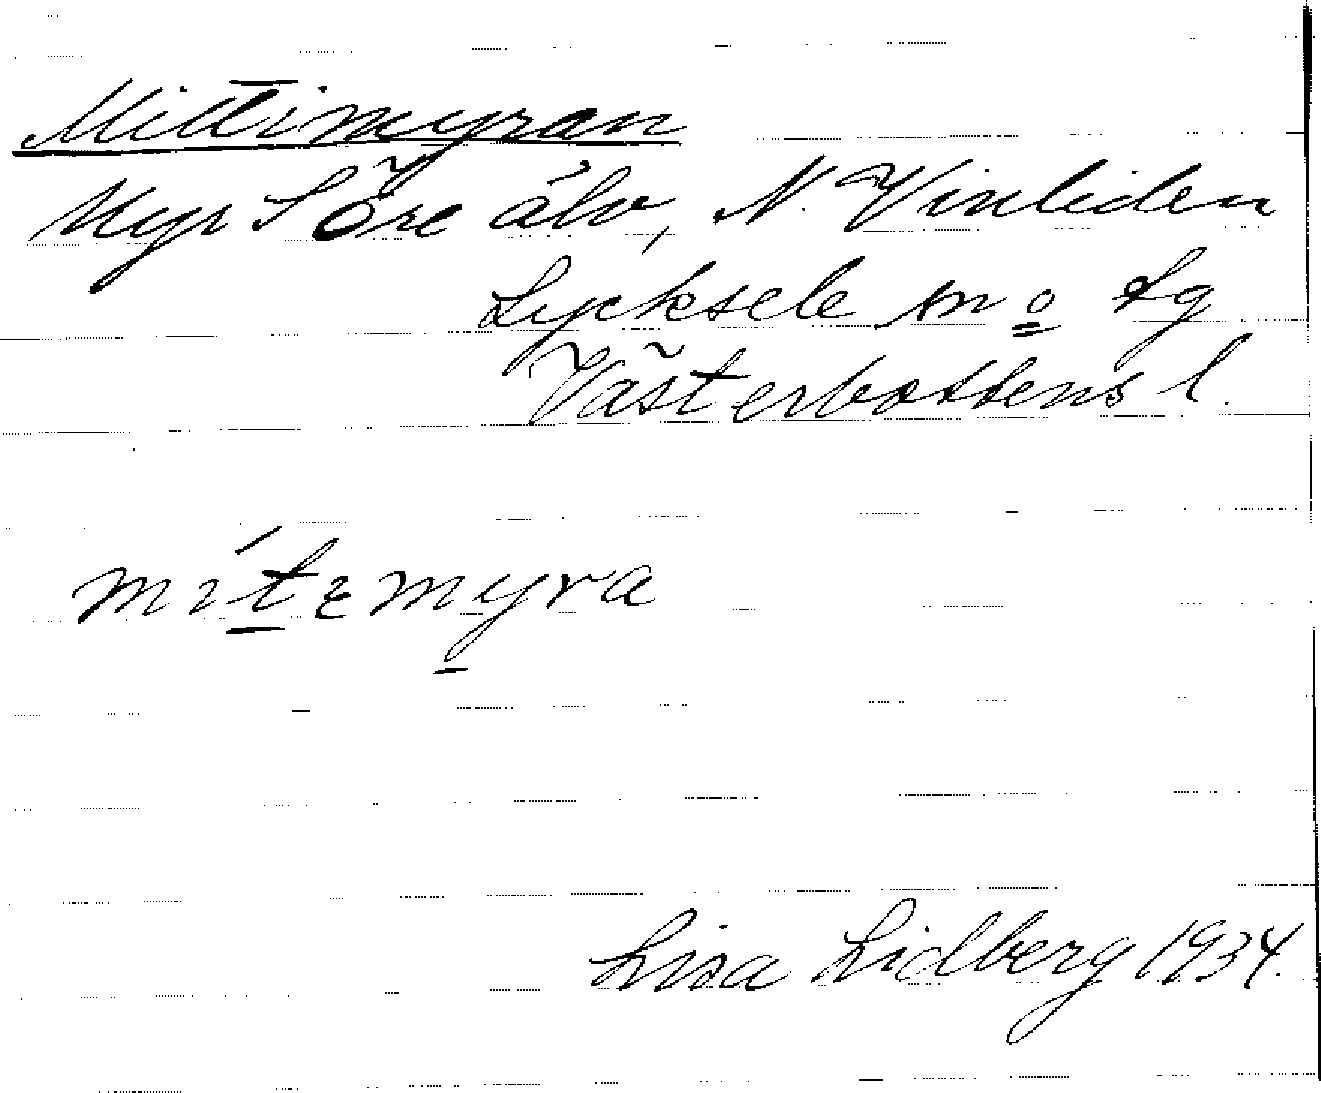 Mittimyran
Myr S Öre älv, N. Vinliden
Lycksele sn o Lg
Västerbottens l.
mítɛmyra
Lisa Lidberg 1934.